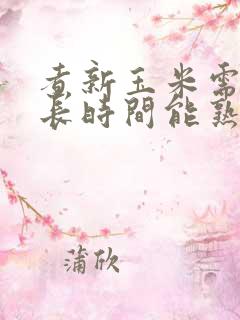 煮新玉米需
長時間能熟
蒲欣